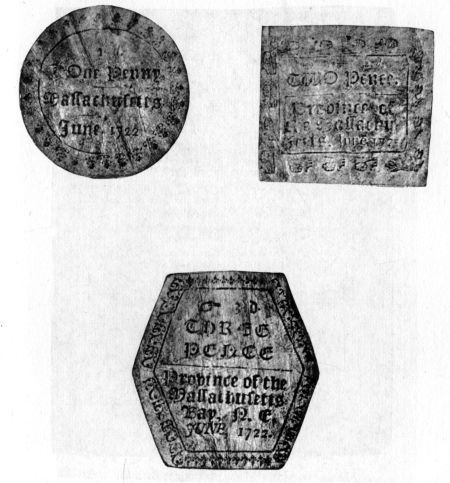 1
One Penny
Massachusetts
June. 1722
TWO Pence.
Province of
the Massachu
setts.
3 d.
THREE
PENCE
Province of the
Massachusetts
Bay. N. E.
JUNE 1722.